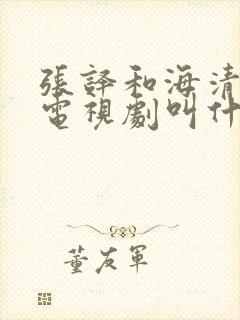 張譯和海清
電視劇叫什
董友軍